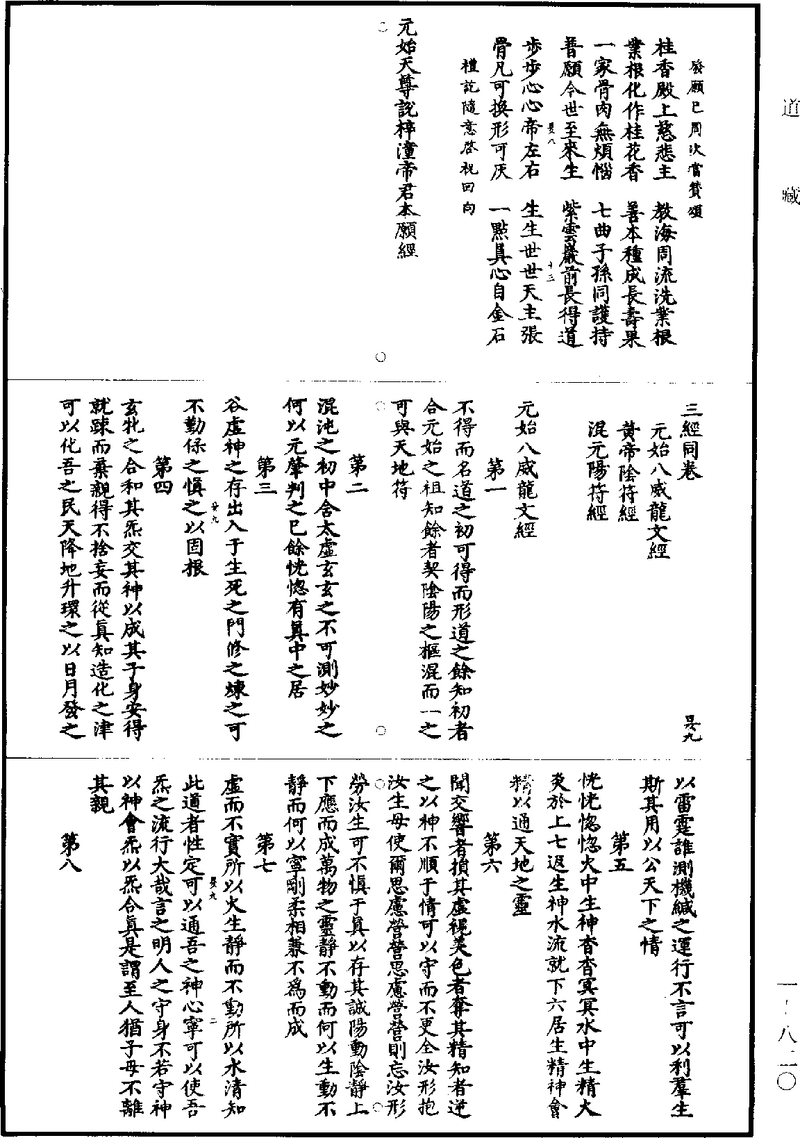 道藏
發願已周次當贊頌
桂香殿上慈悲主　教海周流洗業根
業根化作桂花香　善本種成長壽果
一家骨肉無煩惱　七曲子孫同護持
普願今世至來生　紫雲巖前長得道
步步心心帝左右　生生世世天主張
骨凡可換形可灰　一點眞心自金石
禮說隨意啓祝回向
元始天尊說梓潼帝君本願經
三經同卷
元始八威龍文經
黃帝陰符經
混元陽符經
元始八威龍文經
第一
不得而名道之初可得而形道之餘知初者
合元始之祖知餘者契陰陽之樞混而一之
可與天地符
第二
混沌之初中含太虛玄玄之不可測妙妙之
何以元肇判之已餘恍惚有眞中之居
第三
谷虛神之存出入于生死之門修之煉之可
不勤係之慎之以固根
第四
玄牝之合和其炁交其神以成其子身安得
就踈而棄親得不捨妄而從眞知造化之津
可以化吾之民天降地升環之以日月發之
以雷霆誰測機緘之運行不言可以利羣生
斯其用以公天下之情
第五
恍恍惚惚火中生神杳杳冥冥水中生精火
炎於上七返生神水流就下六居生精神會
精以通天地之靈
第六
聞交響者損其虛視美色者奪其精知者逆
之以神不順于情可以守而不更全汝形抱
汝生母使爾思慮營營思慮營營則忘汝形
勞汝生可不慎于眞以存其誠陽動陰靜上
下應而成萬物之靈靜不動而何以生動不
靜而何以寧剛柔相兼不爲而成
第七
虛而不實所以火生靜而不動所以水清知
此道者性定可以通吾之神心寧可以使吾
炁之流行大哉言之明人之守身不若守神
以神會炁以炁合眞是謂至人猶子母不離
其親
第八
一-八二〇